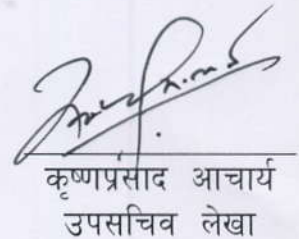 कृष्णप्रसाद आचार्य
उपसचिव लेखा